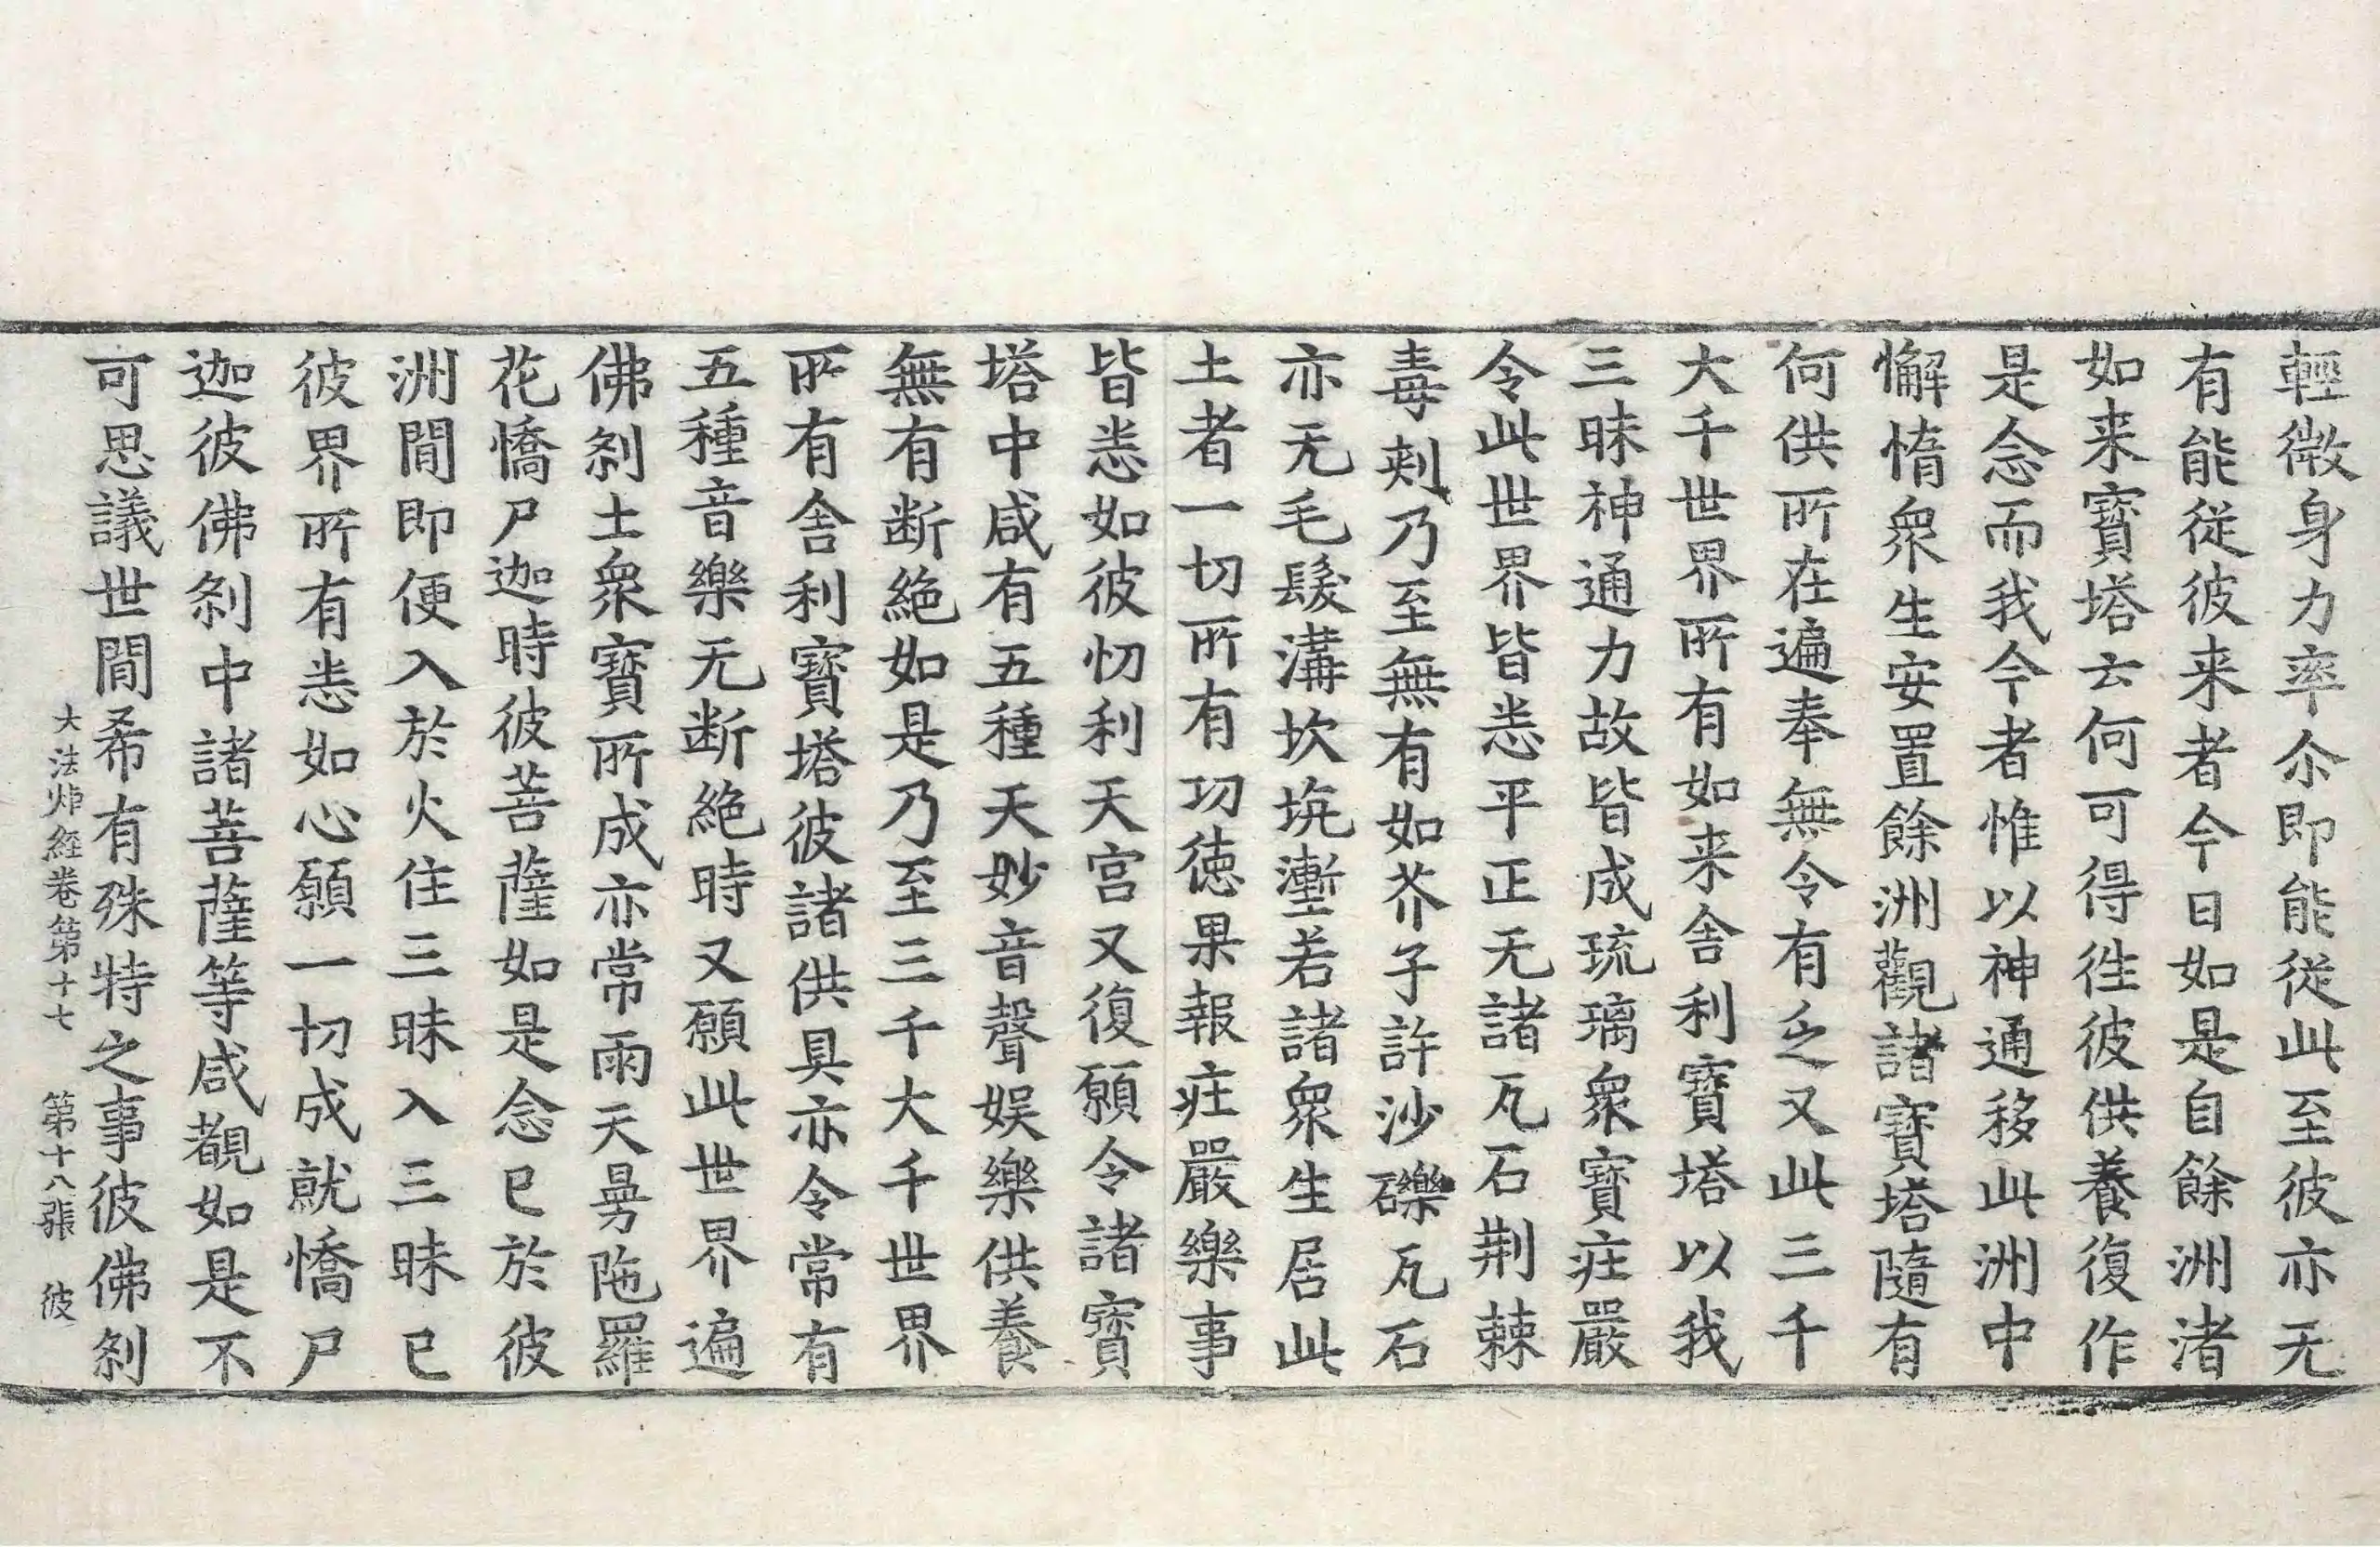 輕微身力率尒即能從此至彼亦无
有能從彼来者今日如是自餘洲渚
如来寶塔云何可得徃彼供養復作
是念而我今者惟以神通移此洲中
懈惰衆生安置餘洲觀諸寶塔隨有
何供所在遍奉無令有乏又此三千
大千世界所有如来舎利寶塔以我
三昧神通力故皆成琉璃衆寶庄嚴
令此世界皆悉平正无諸瓦石荆棘
毒刺乃至無有如芥子許沙礫瓦石
亦无毛髮溝坎坑壍若諸衆生居此
土者一切所有功徳果報庄嚴樂事
皆悉如彼忉利天宫又復願令諸寶
塔中咸有五種天妙音聲娱樂供養
無有断絶如是乃至三千大千世界
所有舎利寶塔彼諸供具亦令常有
五種音樂无断絶時又願此世界遍
佛刹土衆寶所成亦常雨天曼陁羅
花憍尸迦時彼菩薩如是念已於彼
洲間即便入於火住三昧入三昧已
彼界所有悉如心願一切成就憍尸
迦彼佛刹中諸菩薩等咸覩如是不
可思議世間希有殊特之事彼佛刹
大法炬経卷第十七 第十八張 彼